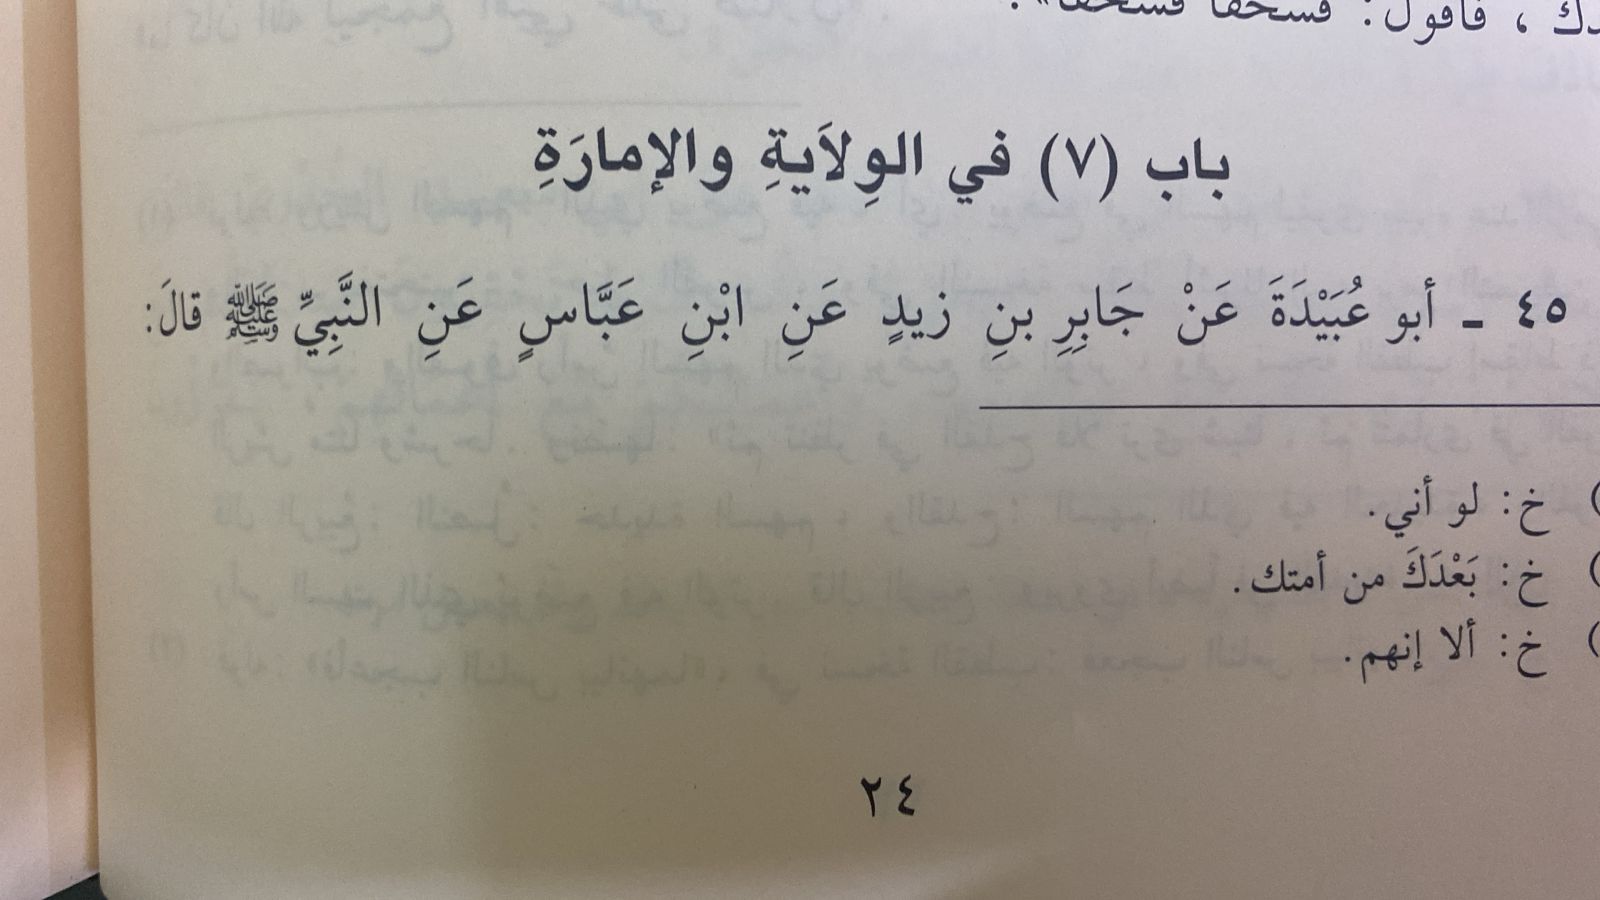 فأقول: فسحقا فسحقا».
باب (٧) في الوِلاَيةِ والإمارَةِ
٤٥ ـ أبو عُبَيْدَةَ عَنْ جَابِرِ بنِ زيدٍ عَنِ ابْنِ عَبَّاسٍ عَنِ النَّبِيِّ ﷺ قالَ:
) خ: لو أني.
) خ: بَعْدَكَ من أمتك.
) خ: ألا إنهم.
٢٤